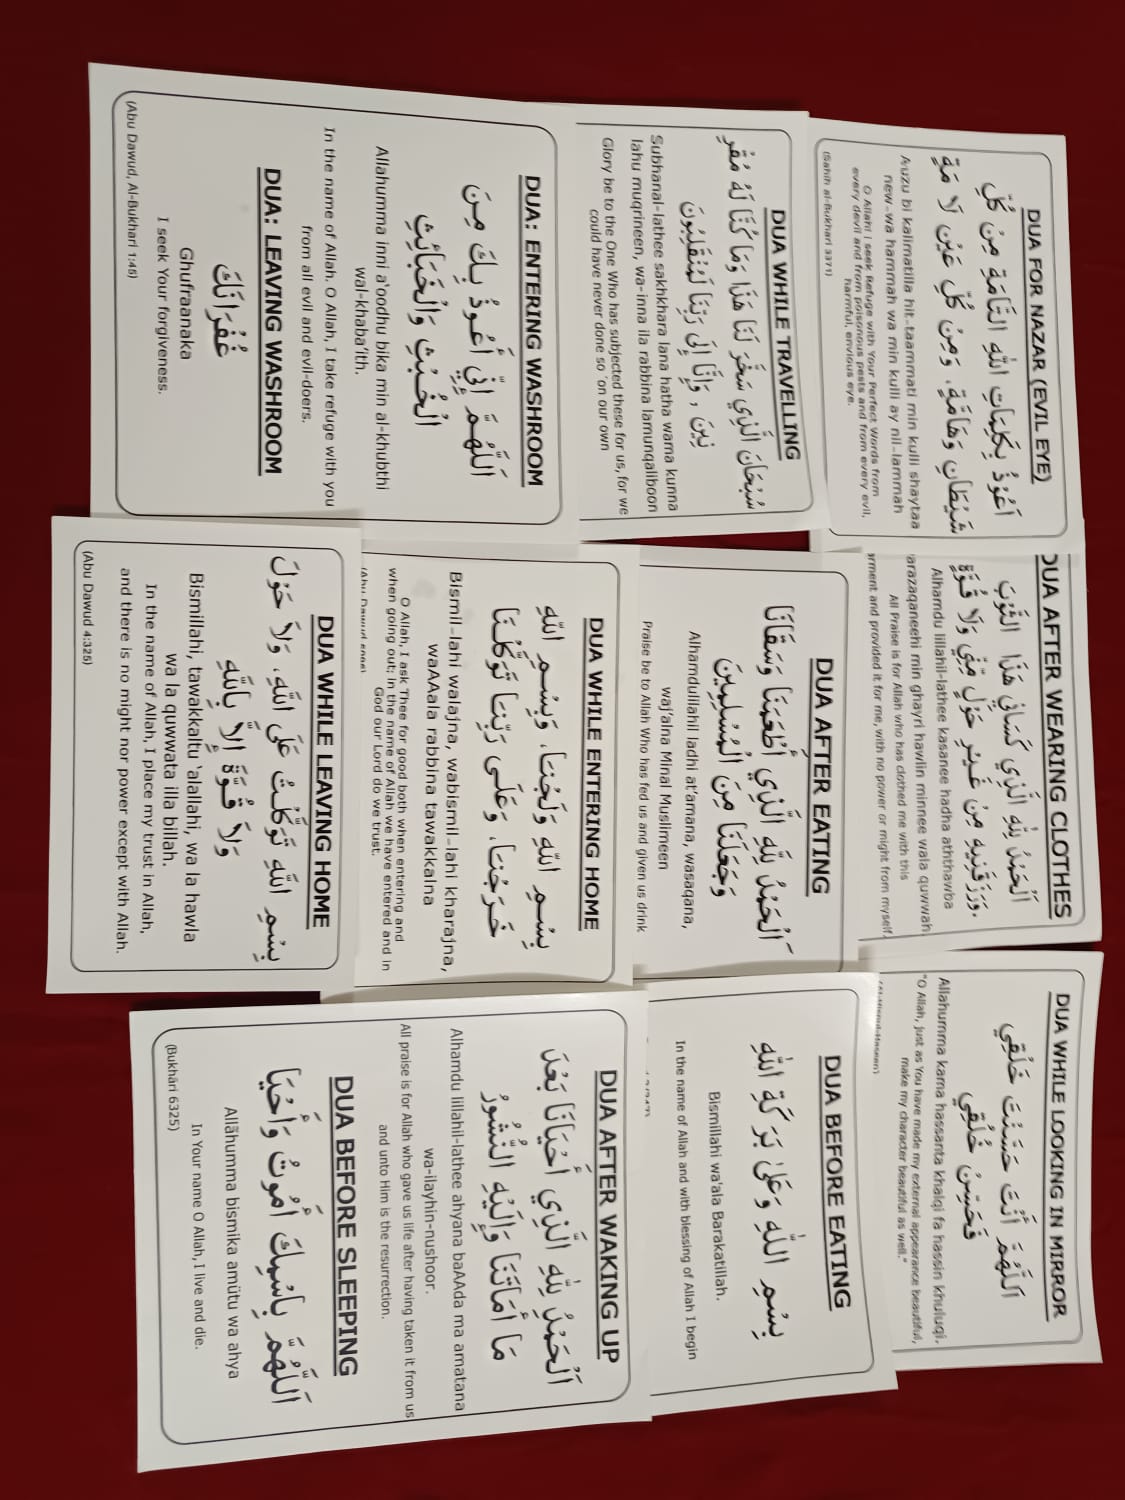 DUA FOR NAZAR (EVIL EYE)
اَعُوْذُ بِكَلِمَاتِ اللهِ التَّامَّةِ مِنْ كُلِّ
شَيْطَانٍ وَهَامَّةٍ، وَمِنْ كُلِّ عَيْنٍ لَا مَّةٍ
Auzu bi kalimatilla hit-taammati min kulli shaytaa
new-wa hammah wa min kulli ay nil-lammah
O Allah! I seek Refuge with Your Perfect Words from
every devil and from poisonous pests and from every evil,
harmful, envious eye.
(Sahih al-Bukhari 3371)
DUA WHILE TRAVELLING
سُبْحَانَ الَّذِي سَخَّرَ لَنَا هَذَا وَمَا كُنَّا لَهُ مُقْرِ
نِينَ , وَإِنَّا إِلَى رَبِّنَا لَمُنْقَلِبُونَ
Subhanal-lathee sakhkhara lana hatha wama kunna
lahu muqrineen, wa-inna ila rabbina lamunqaliboon
Glory be to the One Who has subjected these for us, for we
could have never done so 'on our own
DUA: ENTERING WASHROOM
اَللَّهُمَّ إِنِّي أَعُوذُ بِكَ مِنَ
الْخُبُثِ وَالْخَبَائِثِ
Allahumma inni a'oodhu bika min al-khubthi
wal-khaba'ith.
In the name of Allah. O Allah, I take refuge with you
from all evil and evil-doers.
DUA: LEAVING WASHROOM
غُفْرَانَكَ
Ghufraanaka
I seek Your forgiveness.
(Abu Dawud, Al-Bukhari 1:45)
DUA AFTER WEARING CLOTHES
اَلْحَمْدُ لِلّٰهِ الَّذِي كَسَانِي هَذَا الثَّوْبَ
وَرَزَقَنِيهِ مِنْ غَيْرِ حَوْلٍ مِّنِّي وَلَا قُوَّةٍ.
Alhamdu lillahil-lathee kasanee hadha aththawba
arazaqaneehi min ghayri hawlin minnee wala quwwah
All Praise is for Allah who has clothed me with this
arment and provided it for me, with no power or might from myself.
DUA AFTER EATING
اَلْحَمْدُ لِلَّهِ الَّذِي أَطْعَمَنَا وَسَقَانَا
وَجَعَلَنَا مِنَ الْمُسْلِمِينَ
Alhamdulilahil ladhi at'amana, wasaqana,
waj'alna Minal Muslimeen
Praise be to Allah Who has fed us and given us drink
DUA WHILE ENTERING HOME
بِسْمِ اللهِ وَلَجْنَا، وَبِسْمِ اللهِ
خَرَجْنَا، وَعَلَى رَبِّنَا تَوَكَّلْنَا
Bismil-lahi walajna, wabismil-lahi kharajna,
waAAala rabbina tawakkalna
O Allah, I ask Thee for good both when entering and
when going out; in the name of Allah we have entered and in
God our Lord do we trust.
DUA WHILE LEAVING HOME
بِسْمِ اللهِ تَوَكَّلْتُ عَلَى اللهِ، وَلاَ حَوْلَ
وَلاَ قُوَّةَ إِلاَّ بِاللهِ
Bismillahi, tawakkaltu 'alallahi, wa la hawla
wa la quwwata illa billah.
In the name of Allah, I place my trust in Allah,
and there is no might nor power except with Allah.
(Abu Dawud 4:325)
DUA WHILE LOOKING IN MIRROR
اَللَّهُمَّ أَنْتَ حَسَّنْتَ خَلْقِي
فَحَسِّنْ خُلُقِي
Allahumma kama hassanta khalqi fa hassin khuluqi.
"O Allah, just as You have made my external appearance beautiful,
make my character beautiful as well."
DUA BEFORE EATING
بِسْمِ اللّٰهِ وَعَلَىٰ بَرَكَةِ اللّٰهِ
Bismillahi wa'ala Barakatillah.
In the name of Allah and with blessing of Allah I begin
DUA AFTER WAKING UP
اَلْحَمْدُ لِلّٰهِ الَّذِي أَحْيَانَا بَعْدَ
مَا أَمَاتَنَا وَإِلَيْهِ النُّشُورُ
Alhamdu lillahil-lathee ahyana baAAda ma amatana
wa-ilayhin-nushoor.
All praise is for Allah who gave us life after having taken it from us
and unto Him is the resurrection.
DUA BEFORE SLEEPING
اَللَّهُمَّ بِاسْمِكَ أَمُوتُ وَأَحْيَا
Allāhumma bismika amūtu wa ahya
In Your name O Allah, I live and die.
(Bukhāri 6325)